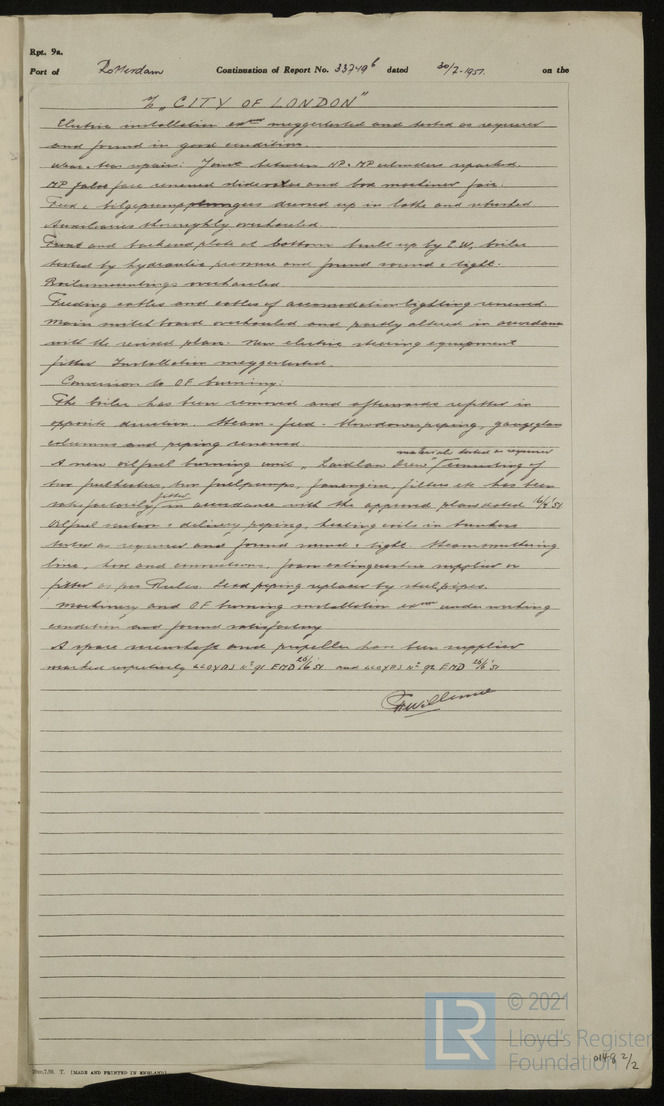 Rpt. 9a.
Port of Rotterdam Continuation of Report No. 33749 b dated 30/7-1951. on the
"CITY OF LONDON"
Electric installation exned meggertested and tested as required
and found in good condition.
Wear & tear repairs: Joint between HP & MP cylinders repacked.
MP false face renewed slidevalve and rod machined fair.
Feed & bilgepump plungers dressed up in lathe and refitted.
Auxiliaries thoroughly overhauled.
Front and backend plate at bottom built up by E.W. boiler
tested by hydraulic pressure and found sound & tight.
Boilermountings overhauled
Feeding cables and cables of accomodation lighting renewed
Main switch board overhauled and partly altered in accordance
with the revised plan. New electric steering equipment
fitted Installation meggertested.
Conversion to OF burning:
The boiler has been removed and afterwards refitted in
opposite direction. Steam - feed - blowdown piping, gaugeglass
columns and piping renewed.
materials tested as required
A new oilfuel burning unit "Laidlaw Drew" consisting of
two fuelheaters, two fuelpumps, fanengine, filters etc has been
satisfactorily fitted in accordance with the approved plans dated 16/4 '51
Oilfuel suction & delivery piping, heating coils in bunkers
tested as required and found sound & tight. Steamsmothering
line, and connections, foam extinguishers supplied or
fitted as per Rules. Lead piping replaced by steelpipes.
Machinery and OF burning installation exned under working
condition and found satisfactory
A spare screwshaft and propeller have been supplied
marked respectively LLOYDS No 91 FMD 20/6 '51 and LLOYDS No 92 FMD 20/6 '51
20m,7,50. T. (MADE AND PRINTED IN ENGLAND)
LR
© 2021
Lloyd's Register
Foundation
0148 2/2